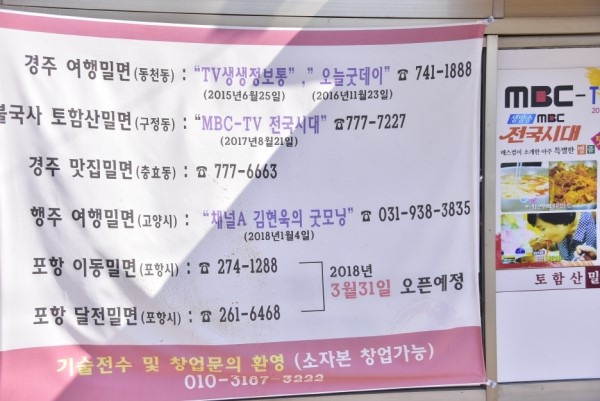 경주 여행밀면(동천동) : "TV생생정보통", "오늘굿데이" ☎ 741-1888
(2015년6월25일) (2016년11월23일)
불국사 토함산밀면(구정동) : "MBC-TV 전국시대" ☎777-7227
(2017년8월21일)
경주 맛집밀면(충효동) : ☎ 777-6663
행주 여행밀면(고양시) : "채널A 김현욱의 굿모닝" ☎ 031-938-3835
(2018년1월4일)
포항 이동밀면(포항시) : ☎ 274-1288
2018년
3월31일 오픈예정
포항 달전밀면(포항시) : ☎ 261-6468
기술전수 및 창업문의 환영 (소자본 창업가능)
010-3167-3222
MBC-T
생방송 MBC
전국시대
매스컴이 소개한 아주 특별한
토함산밀